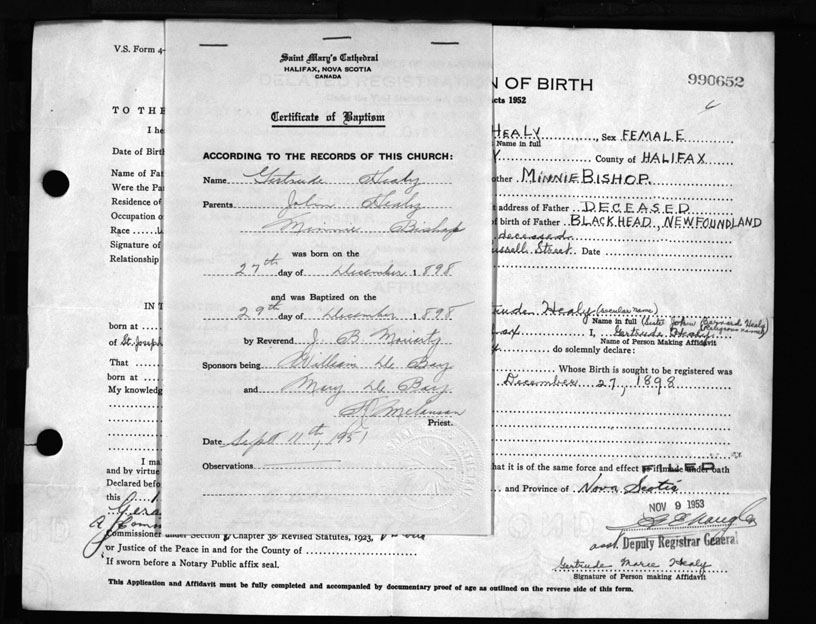 V.S. Form 4-
N OF BIRTH
990652
cts 1952
TO THE
I he
HEALY, Sex FEMALE
Name in full
Date of Birth
Y County of HALIFAX
Name of Fat
other MINNIE BISHOP.
Were the Pa
Residence of
address of Father DECEASED
Occupation o
of birth of Father BLACKHEAD, NEWFOUNDLAND
Race
deceased
Signature of
ussell Street. Date
Relationship
Saint Mary's Cathedral
HALIFAX, NOVA SCOTIA
CANADA
Certificate of Baptism
ACCORDING TO THE RECORDS OF THIS CHURCH:
Name Gertrude Healy
Parents John Healy
Minnie Bishop
was born on the
27th day of December 1898
and was Baptized on the
29th day of December 1898
by Reverend J. B. Moriarty
Sponsors being William De Bay
and Mary De Bay
Melanson
Priest.
Date Sept 11th, 1951
Observations
IN T
trude Healy (secular name)
Name in full (Sister John Bernard Healy)
(Religious name)
born at
I, Gertrude Healy
of St. Joseph
Name of Person Making Affidavit
do solemnly declare:
That
Whose Birth is sought to be registered was
born at
December 27, 1898
My knowledg
I ma
that it is of the same force and effect as if made under oath
FILED
and by virtue
Declared befo
and Province of Nova Scotia
this
NOV 9 1953
Commissioner under Section Chapter 38 Revised Statutes, 1923,
asst. Deputy Registrar General
or Justice of the Peace in and for the County of
If sworn before a Notary Public affix seal.
Gertrude Marie Healy
Signature of Person making Affidavit
This Application and Affidavit must be fully completed and accompanied by documentary proof of age as outlined on the reverse side of this form.